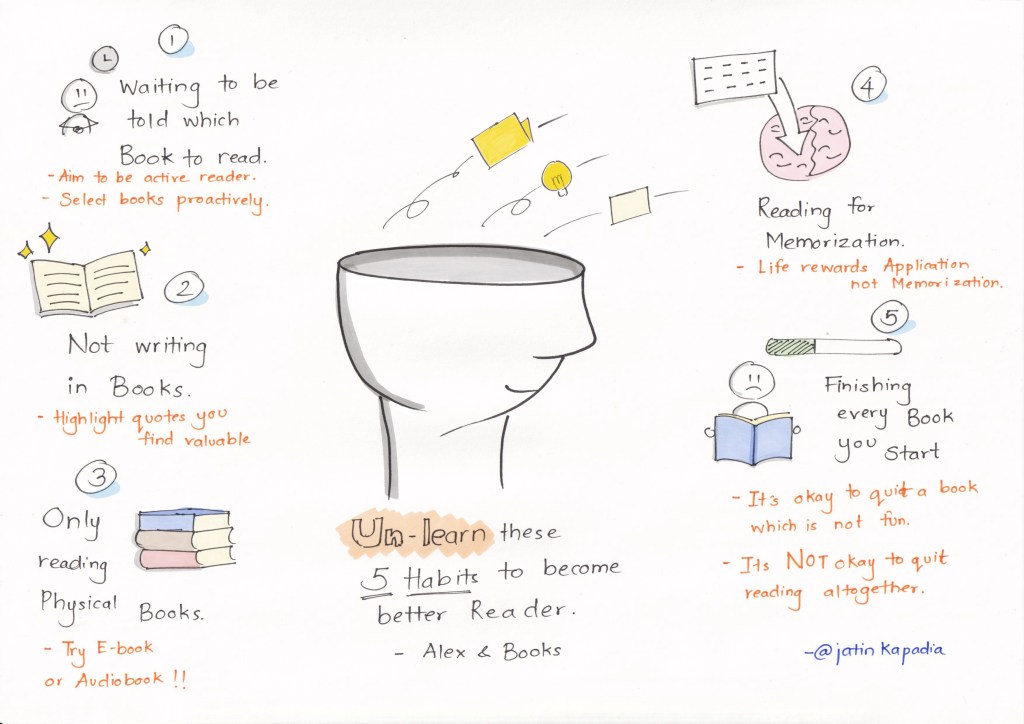 1
Waiting to be
told which
Book to read.
- Aim to be active reader.
- Select books proactively.
2
Not writing
in Books.
- Highlight quotes you
find valuable
3
Only
reading
Physical Books.
- Try E-book
or Audiobook !!
Un-learn these
5 Habits to become
better Reader.
- Alex & Books
4
Reading for
Memorization.
- Life rewards Application
not Memorization.
5
Finishing
every Book
you Start
- It's okay to quit a book
which is not fun.
- Its NOT okay to quit
reading altogether.
-@jatin kapadia